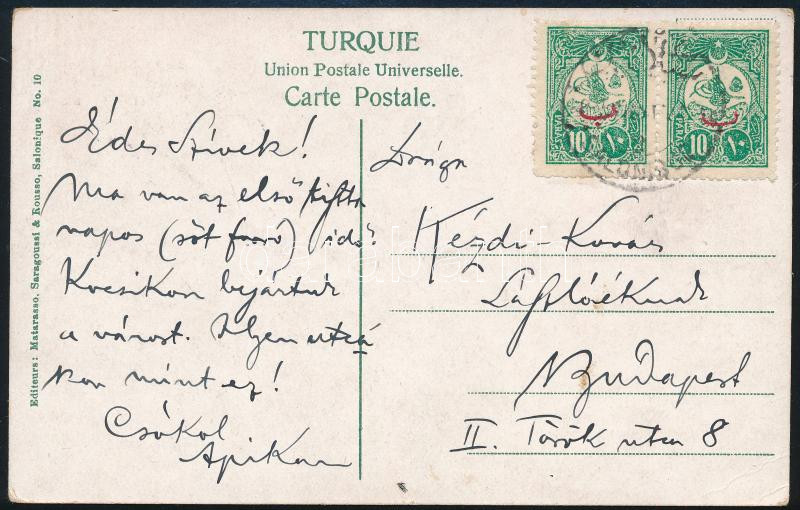 TURQUIE
Union Postale Universelle.
Carte Postale.
Editeurs: Matarasso, Saragoussi & Rousso, Salonique No. 10
Édes Szívek!
Ma van az első tiszta
napos (sőt forró) idő.
Kocsikon bejártuk
a várost. Ilyen utcá
kon mint ez!
Csókol
Apikan
Kézdi-Kovács
Lászlóéknak
Budapest
II. Török utca 8
10 PARA ١٠
10 PARA ١٠
ب
ب